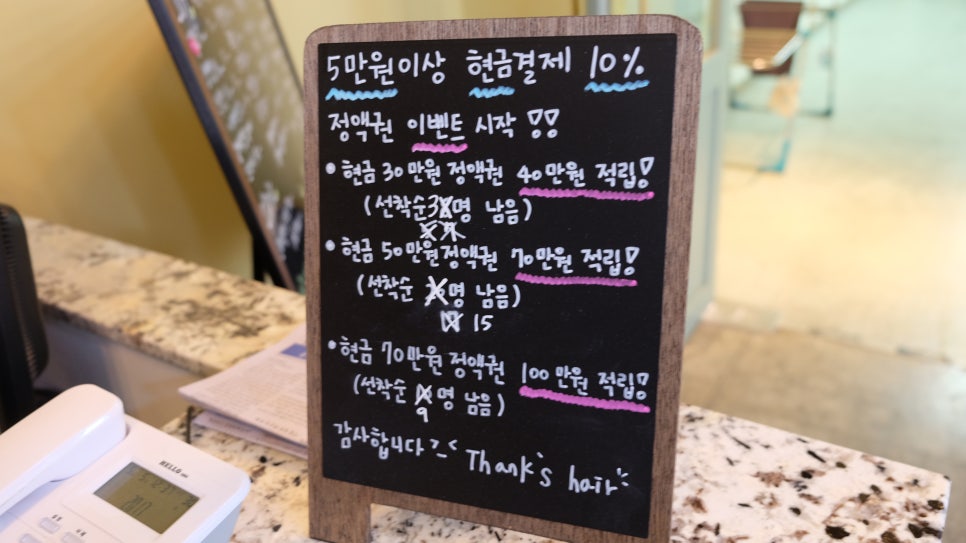 5만원이상 현금결제 10%
정액권 이벤트 시작 !!
• 현금 30만원 정액권 40만원 적립!
(선착순 3 명 남음)
• 현금 50만원 정액권 70만원 적립!
(선착순 명 남음)
15
• 현금 70만원 정액권 100만원 적립!
(선착순 명 남음)
9
감사합니다 Thank's hair
HELLO